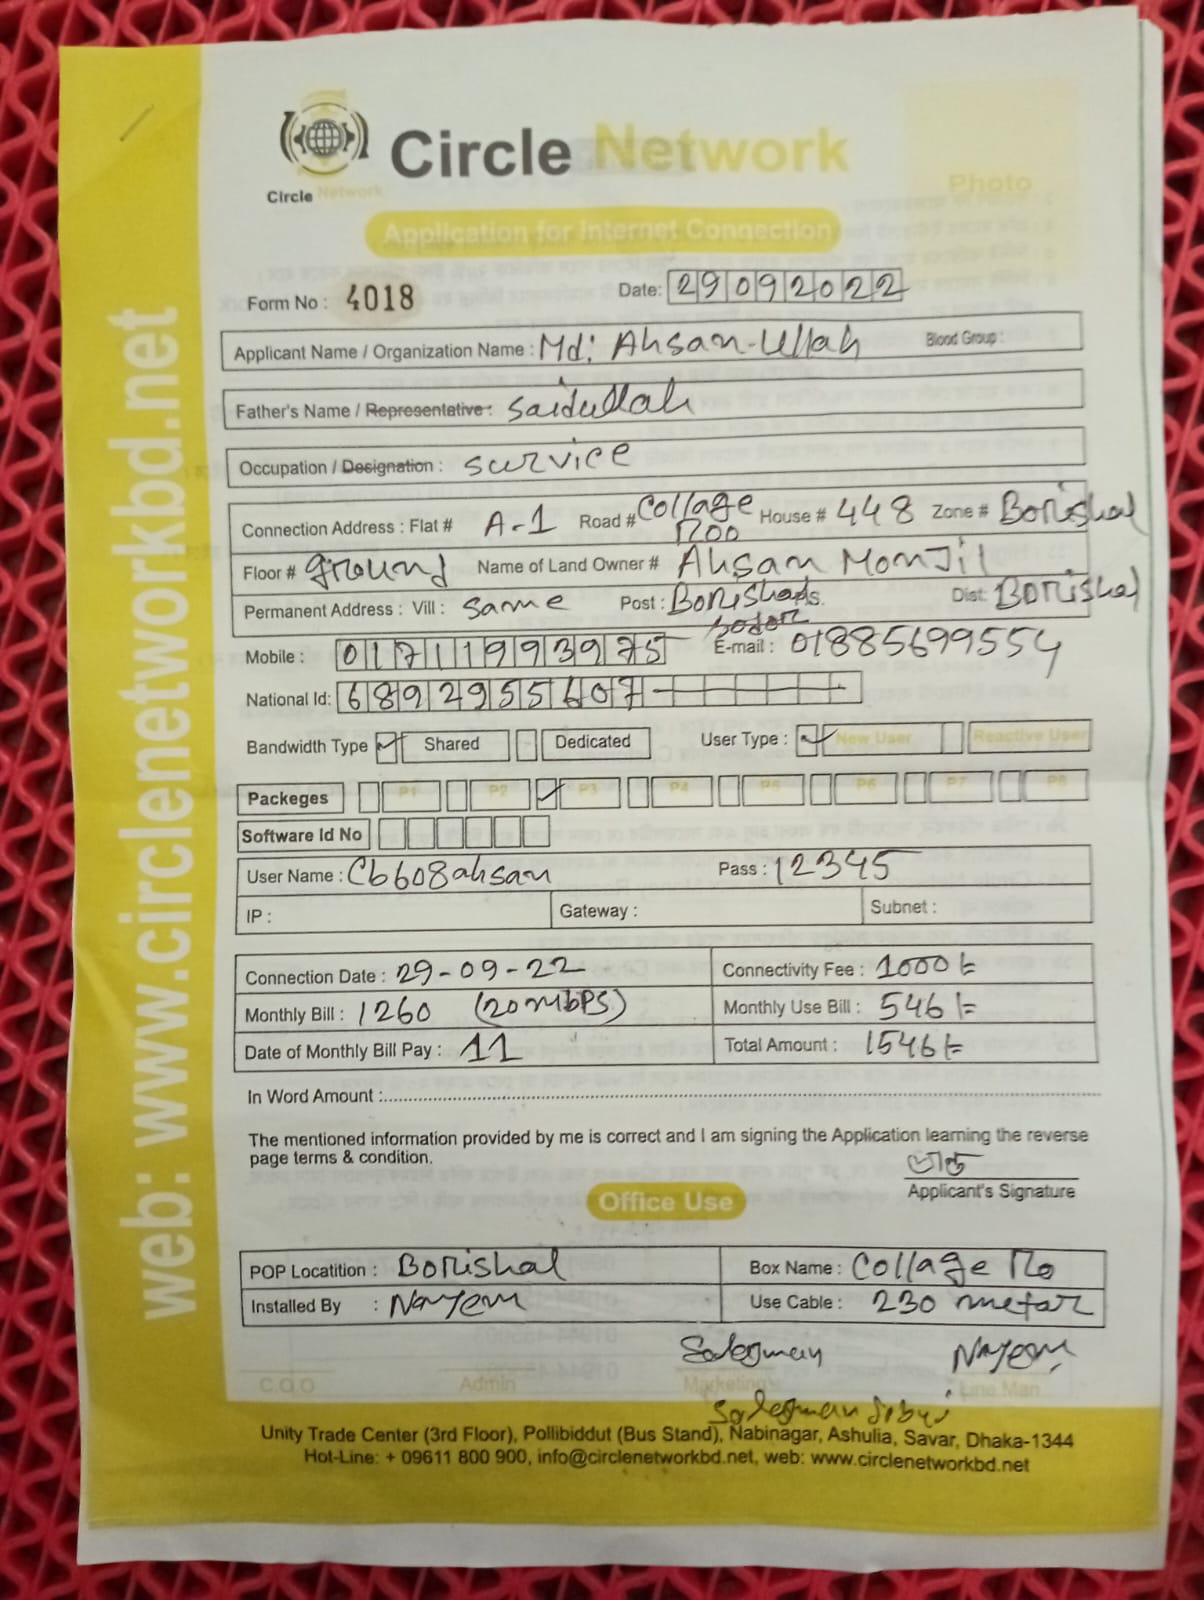 Circle Network
Circle Network
Photo
Application for Internet Connection
Form No : 4018 Date: 29092022
Applicant Name / Organization Name : Md: Ahsan-Ullah Blood Group :
Father's Name / Representative : Saidullah
Occupation / Designation : survice
Connection Address : Flat # A-1 Road # Collage Roo House # 448 Zone # Borishal
Floor # ground Name of Land Owner # Ahsan Monjil
Permanent Address : Vill : same Post : Borishal sodor P.s. Dist: Borishal
Mobile : 01711993975 E-mail : 01885699554
National Id: 6892955607
Bandwidth Type Shared Dedicated User Type : New User Reactive User
Packeges P1 P2 P3 P4 P5 P6 P7 P8
Software Id No
User Name : Cb608ahsan Pass : 12345
IP : Gateway : Subnet :
Connection Date : 29-09-22 Connectivity Fee : 1000/=
Monthly Bill : 1260 (20mbPS) Monthly Use Bill : 546/=
Date of Monthly Bill Pay : 11 Total Amount : 1546/=
In Word Amount :
The mentioned information provided by me is correct and I am signing the Application learning the reverse
page terms & condition.
Applicant's Signature
Office Use
POP Locatition : Borishal Box Name : Collage Ro
Installed By : Nayem Use Cable : 230 metar
Nayem
C.O.O Admin Marketing Line Man
Unity Trade Center (3rd Floor), Pollibiddut (Bus Stand), Nabinagar, Ashulia, Savar, Dhaka-1344
Hot-Line: + 09611 800 900, info@circlenetworkbd.net, web: www.circlenetworkbd.net
web: www.circlenetworkbd.net